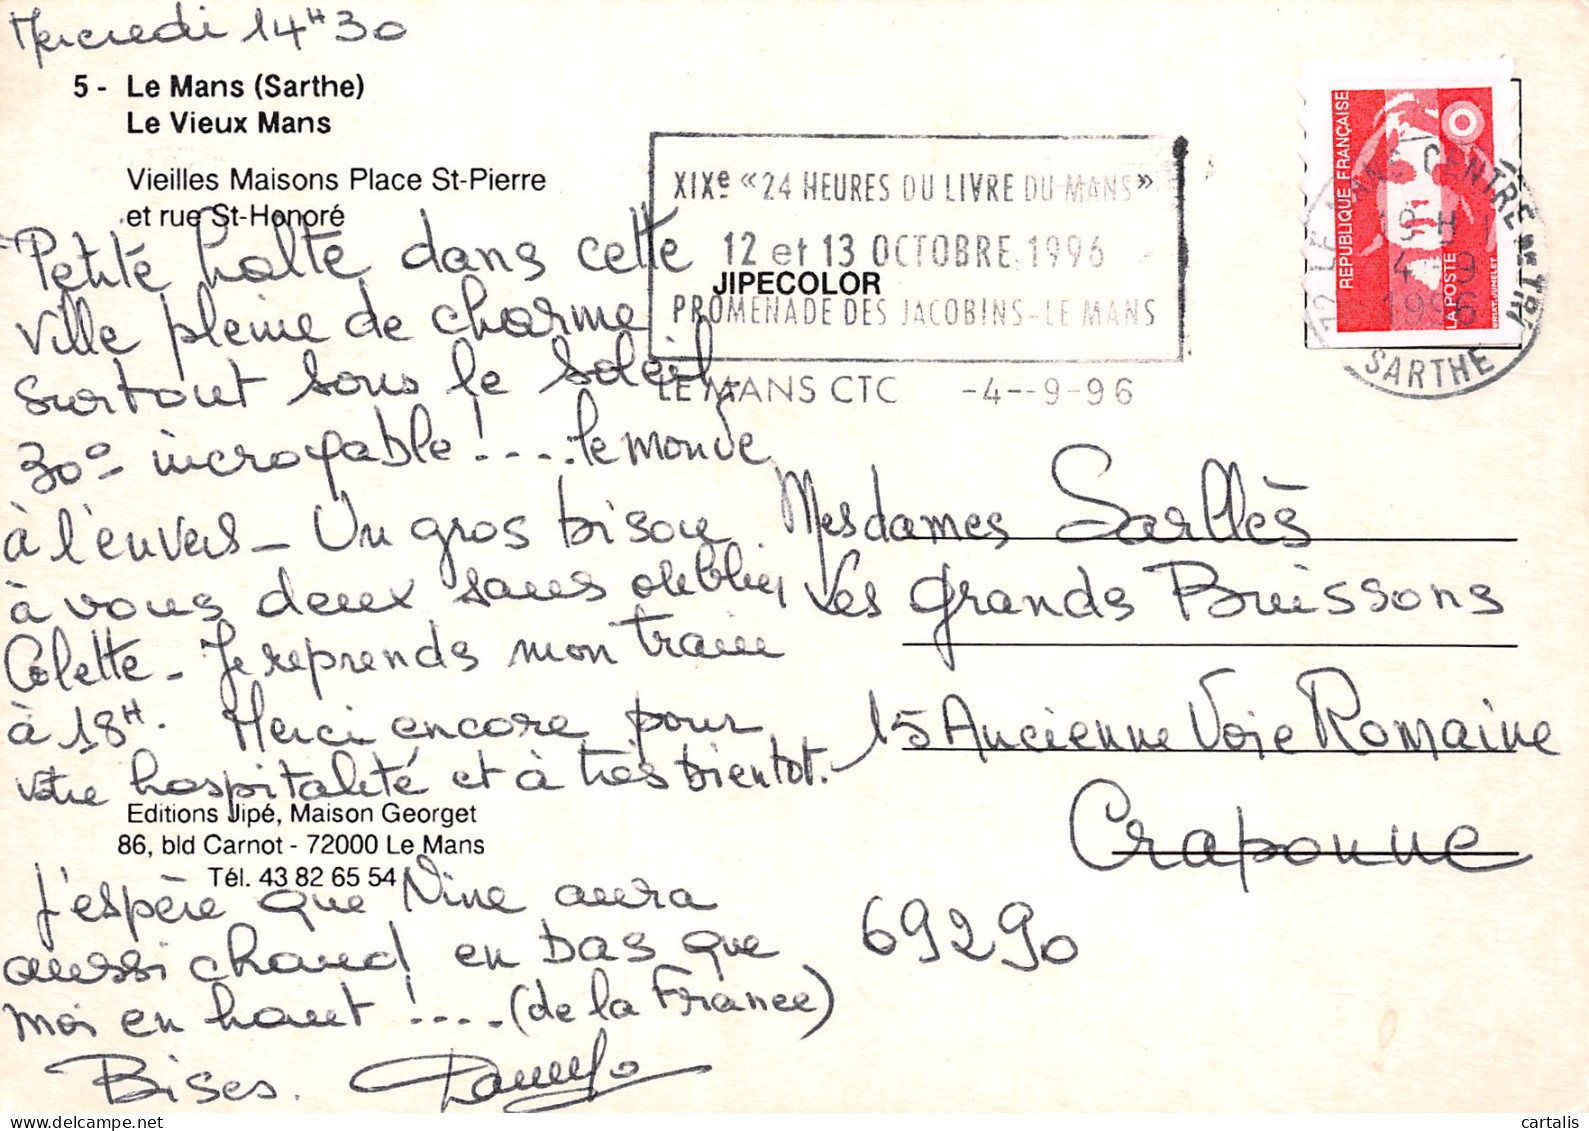 Mercredi 14H30
5 - Le Mans (Sarthe)
Le Vieux Mans
Vieilles Maisons Place St-Pierre
et rue St-Honoré
Petite halte dans cette
ville pleine de charme
surtout sous le soleil
30° incroyable ! .... le monde
à l'envers - Un gros bisou
à vous deux sans oublier
Colette - Je reprends mon train
à 18H. Merci encore pour
votre hospitalité et à très bientot.
Editions Jipé, Maison Georget
86, bld Carnot - 72000 Le Mans
Tél. 43 82 65 54
J'espère que Nine aura
aussi chaud en bas que
moi en haut ! .... (de la France)
Bises.
XIXe « 24 HEURES DU LIVRE DU MANS »
12 et 13 OCTOBRE 1996
JIPECOLOR
PROMENADE DES JACOBINS - LE MANS
LE MANS CTC -4--9-96
REPUBLIQUE FRANÇAISE
LA POSTE
BRIAT-JUMELET
72 LE MANS CENTRE DE TRI
18 H
4 - 9
1996
SARTHE
Mesdames Sarllès
Les grands Buissons
15 Ancienne Voie Romaine
Craponne
69290
cartalis
www.delcampe.net